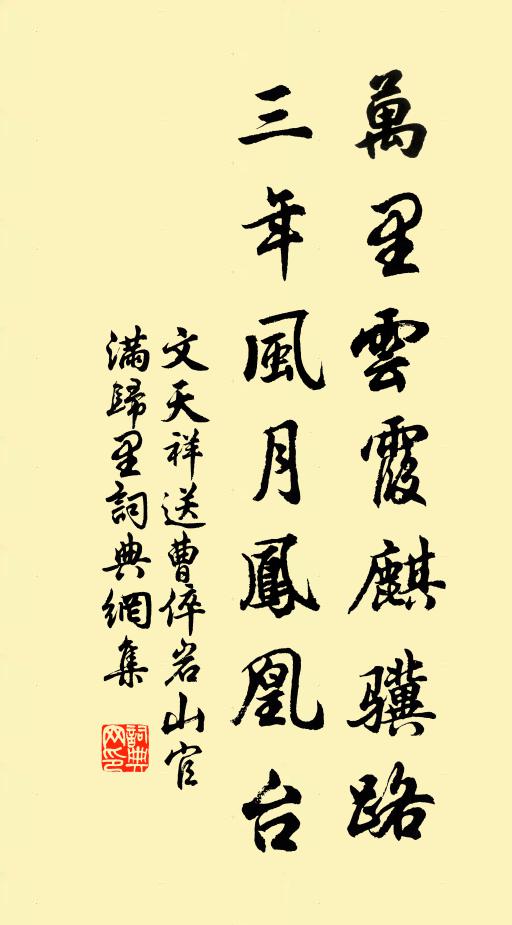 萬里雲霞麒驥路
三年風月鳳凰台
文天祥送曹倅岩山官
滿歸里詞典網集
詞典
网印